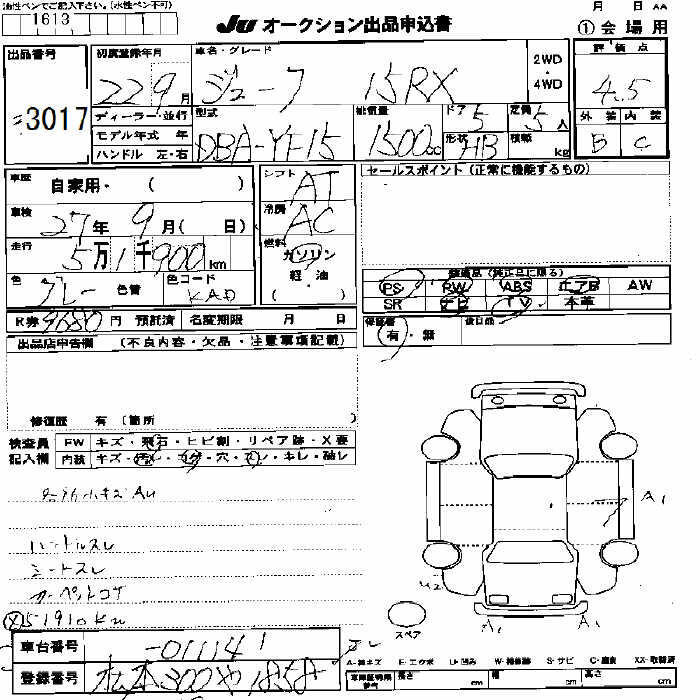 油性ペンでご記入下さい。(水性ペン不可)
1613
JU オークション出品申込書
月 日 AA
① 会場用
出品番号
3017
初度登録年月
22 9月
車名・グレード
ジューク 15RX
2WD
・
4WD
評価点
4.5
ディーラー・並行
モデル年式 年
ハンドル 左・右
型式
DBA-YF15
排気量
1500cc
ドア
5
定員
5人
形状
HB
積載
kg
外装 内装
B C
車歴
自家用・( )
車検
27年 9月( 日)
走行
5万1千900km
色
グレー
色替
色コード
KAD
シフト
AT
冷房
AC
燃料
ガソリン
軽・油
( )
セールスポイント (正常に機能するもの)
装備品 (純正品に限る)
PS PW ABS エアB AW
SR ナビ TV 本革
保証書
有・無
後日品
R券 9680円 預託済 名変期限 月 日
出品店申告欄 (不良内容・欠品・注意事項記載)
修復歴 有 (箇所
検査員
記入欄
FW キズ・飛石・ヒビ割・リペア跡・X要
内装 キズ・汚レ・コゲ・穴・スレ・キレ・軸レ
小キズ AU
ハンドルスレ
シートスレ
カーペットコゲ
51910km
A1
U2
スペア
A1
A1
車台番号
-011141
登録番号
松本300や1858
A-線キズ E-エクボ U-凹ミ W-補修跡 S-サビ C-腐食 XX-取替済
長さ cm 幅 cm 高さ cm